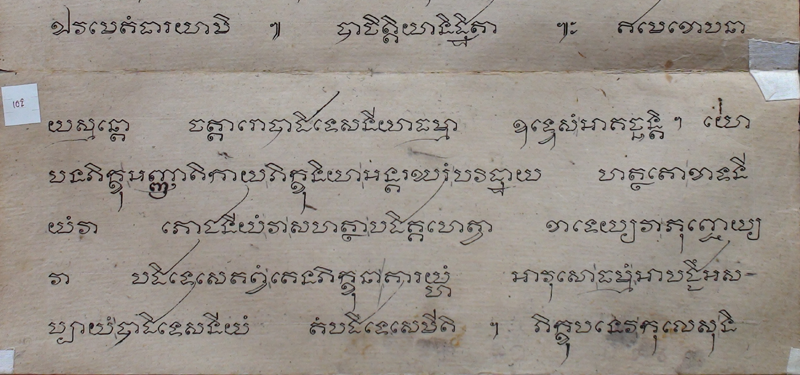 ឯវមេតំធារយាមិ ៕ បាចិត្តិយានិដ្ឋិតា ៕ះ ឥមេខោបនា
យស្មន្តោ ចត្តារោបាដិទេសនីយាធម្មា ឧទ្ទេសំអាគច្ឆន្តិ។ យោ
បនភិក្ខុអញ្ញាតិកាយភិក្ខុនិយាអន្តរឃរំបវិដ្ឋាយ ហត្ថតោខាទនី
យំវា ភោជនីយំវាសហត្ថាបដិគ្គហេត្វា ខាទេយ្យវាភុញ្ជេយ្យ
វា បដិទេសេតព្វំតេនភិក្ខុនាគារយ្ហំ អាវុសោធម្មំអាបជ្ជឹអស-
ប្បាយំបាដិទេសនីយំ តំបដិទេសេមីតិ ។ ភិក្ខូបនេវកុលេសុនិ